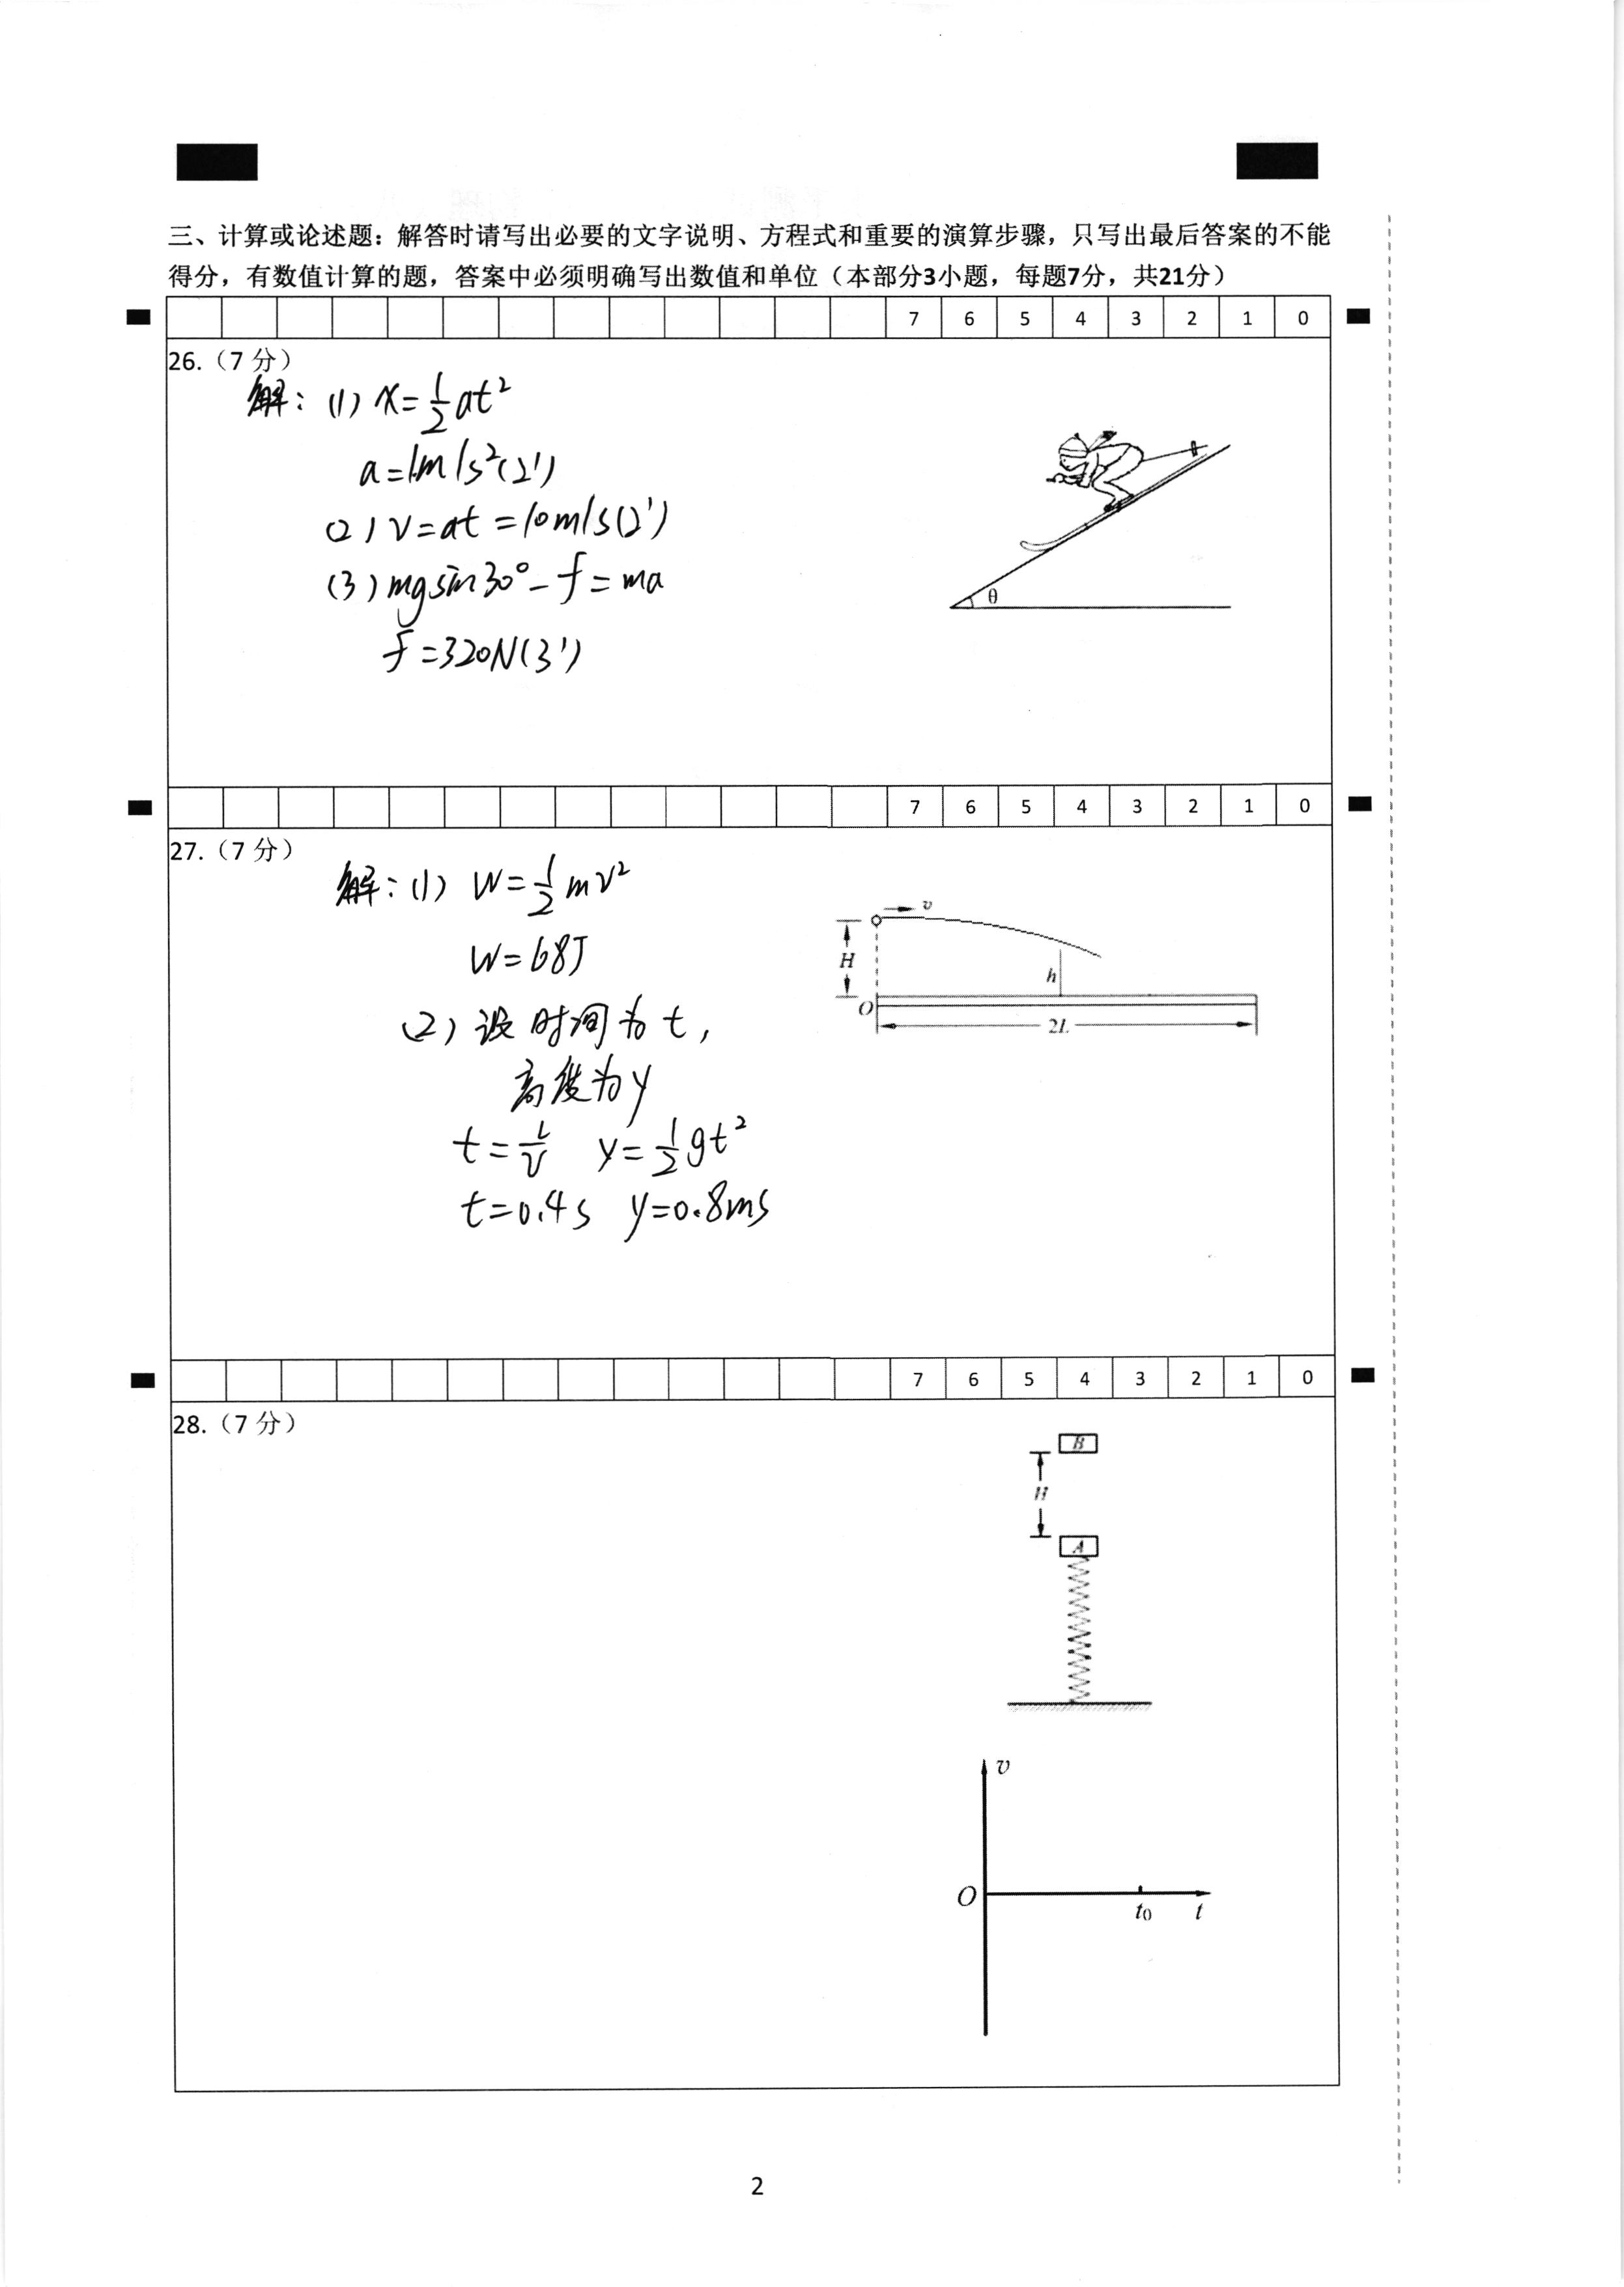 三、计算或论述题：解答时请写出必要的文字说明、方程式和重要的演算步骤，只写出最后答案的不能
得分，有数值计算的题，答案中必须明确写出数值和单位（本部分3小题，每题7分，共21分）
7 6 5 4 3 2 1 0
26.（7 分）
解：(1) x=½at²
a=1m/s²(2')
(2) v=at=10m/s(2')
(3) mgsin30°-f=ma
f=320N(3')
θ
7 6 5 4 3 2 1 0
27.（7 分）
解：(1) W=½mv²
W=68J
(2) 设时间为t，
高度为y
t=L/v y=½gt²
t=0.4s y=0.8ms
v
H
h
O
2L
7 6 5 4 3 2 1 0
28.（7 分）
B
H
A
v
O
t₀ t
2